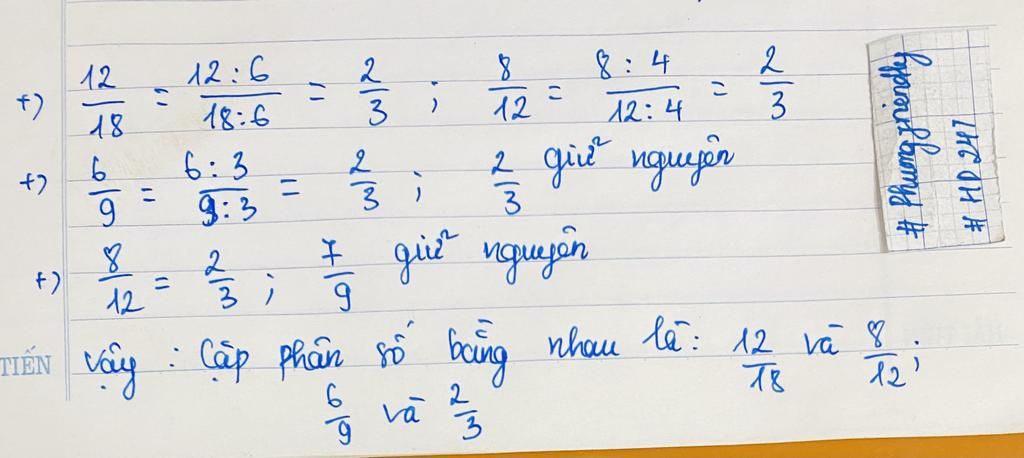 +) 12/18 = 12:6/18:6 = 2/3 ; 8/12 = 8:4/12:4 = 2/3
+) 6/9 = 6:3/9:3 = 2/3 ; 2/3 giữ nguyên
+) 8/12 = 2/3 ; 7/9 giữ nguyên
TIẾN
Vậy : Cặp phân số bằng nhau là: 12/18 và 8/12;
6/9 và 2/3
# Phuongfriendly
# HD247